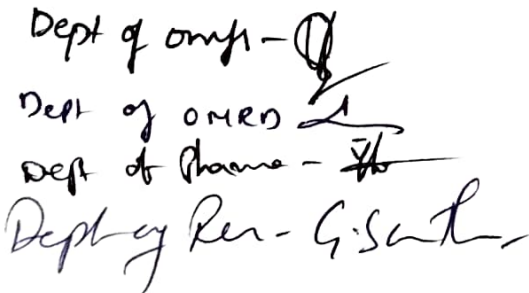 Dept of omfs -
Dept of OMRD
Dept of Pharma -
Dept of Per - G. Santh